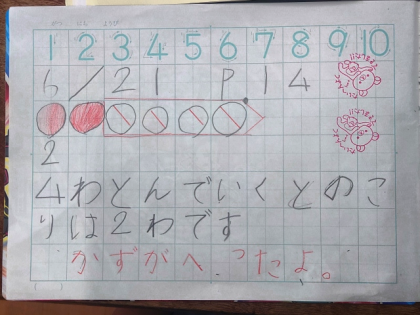 1 2 3 4 5 6 7 8 9 10
6/21 P.14
2
4わとんでいくとのこ
りは2わです
かずがへったよ。